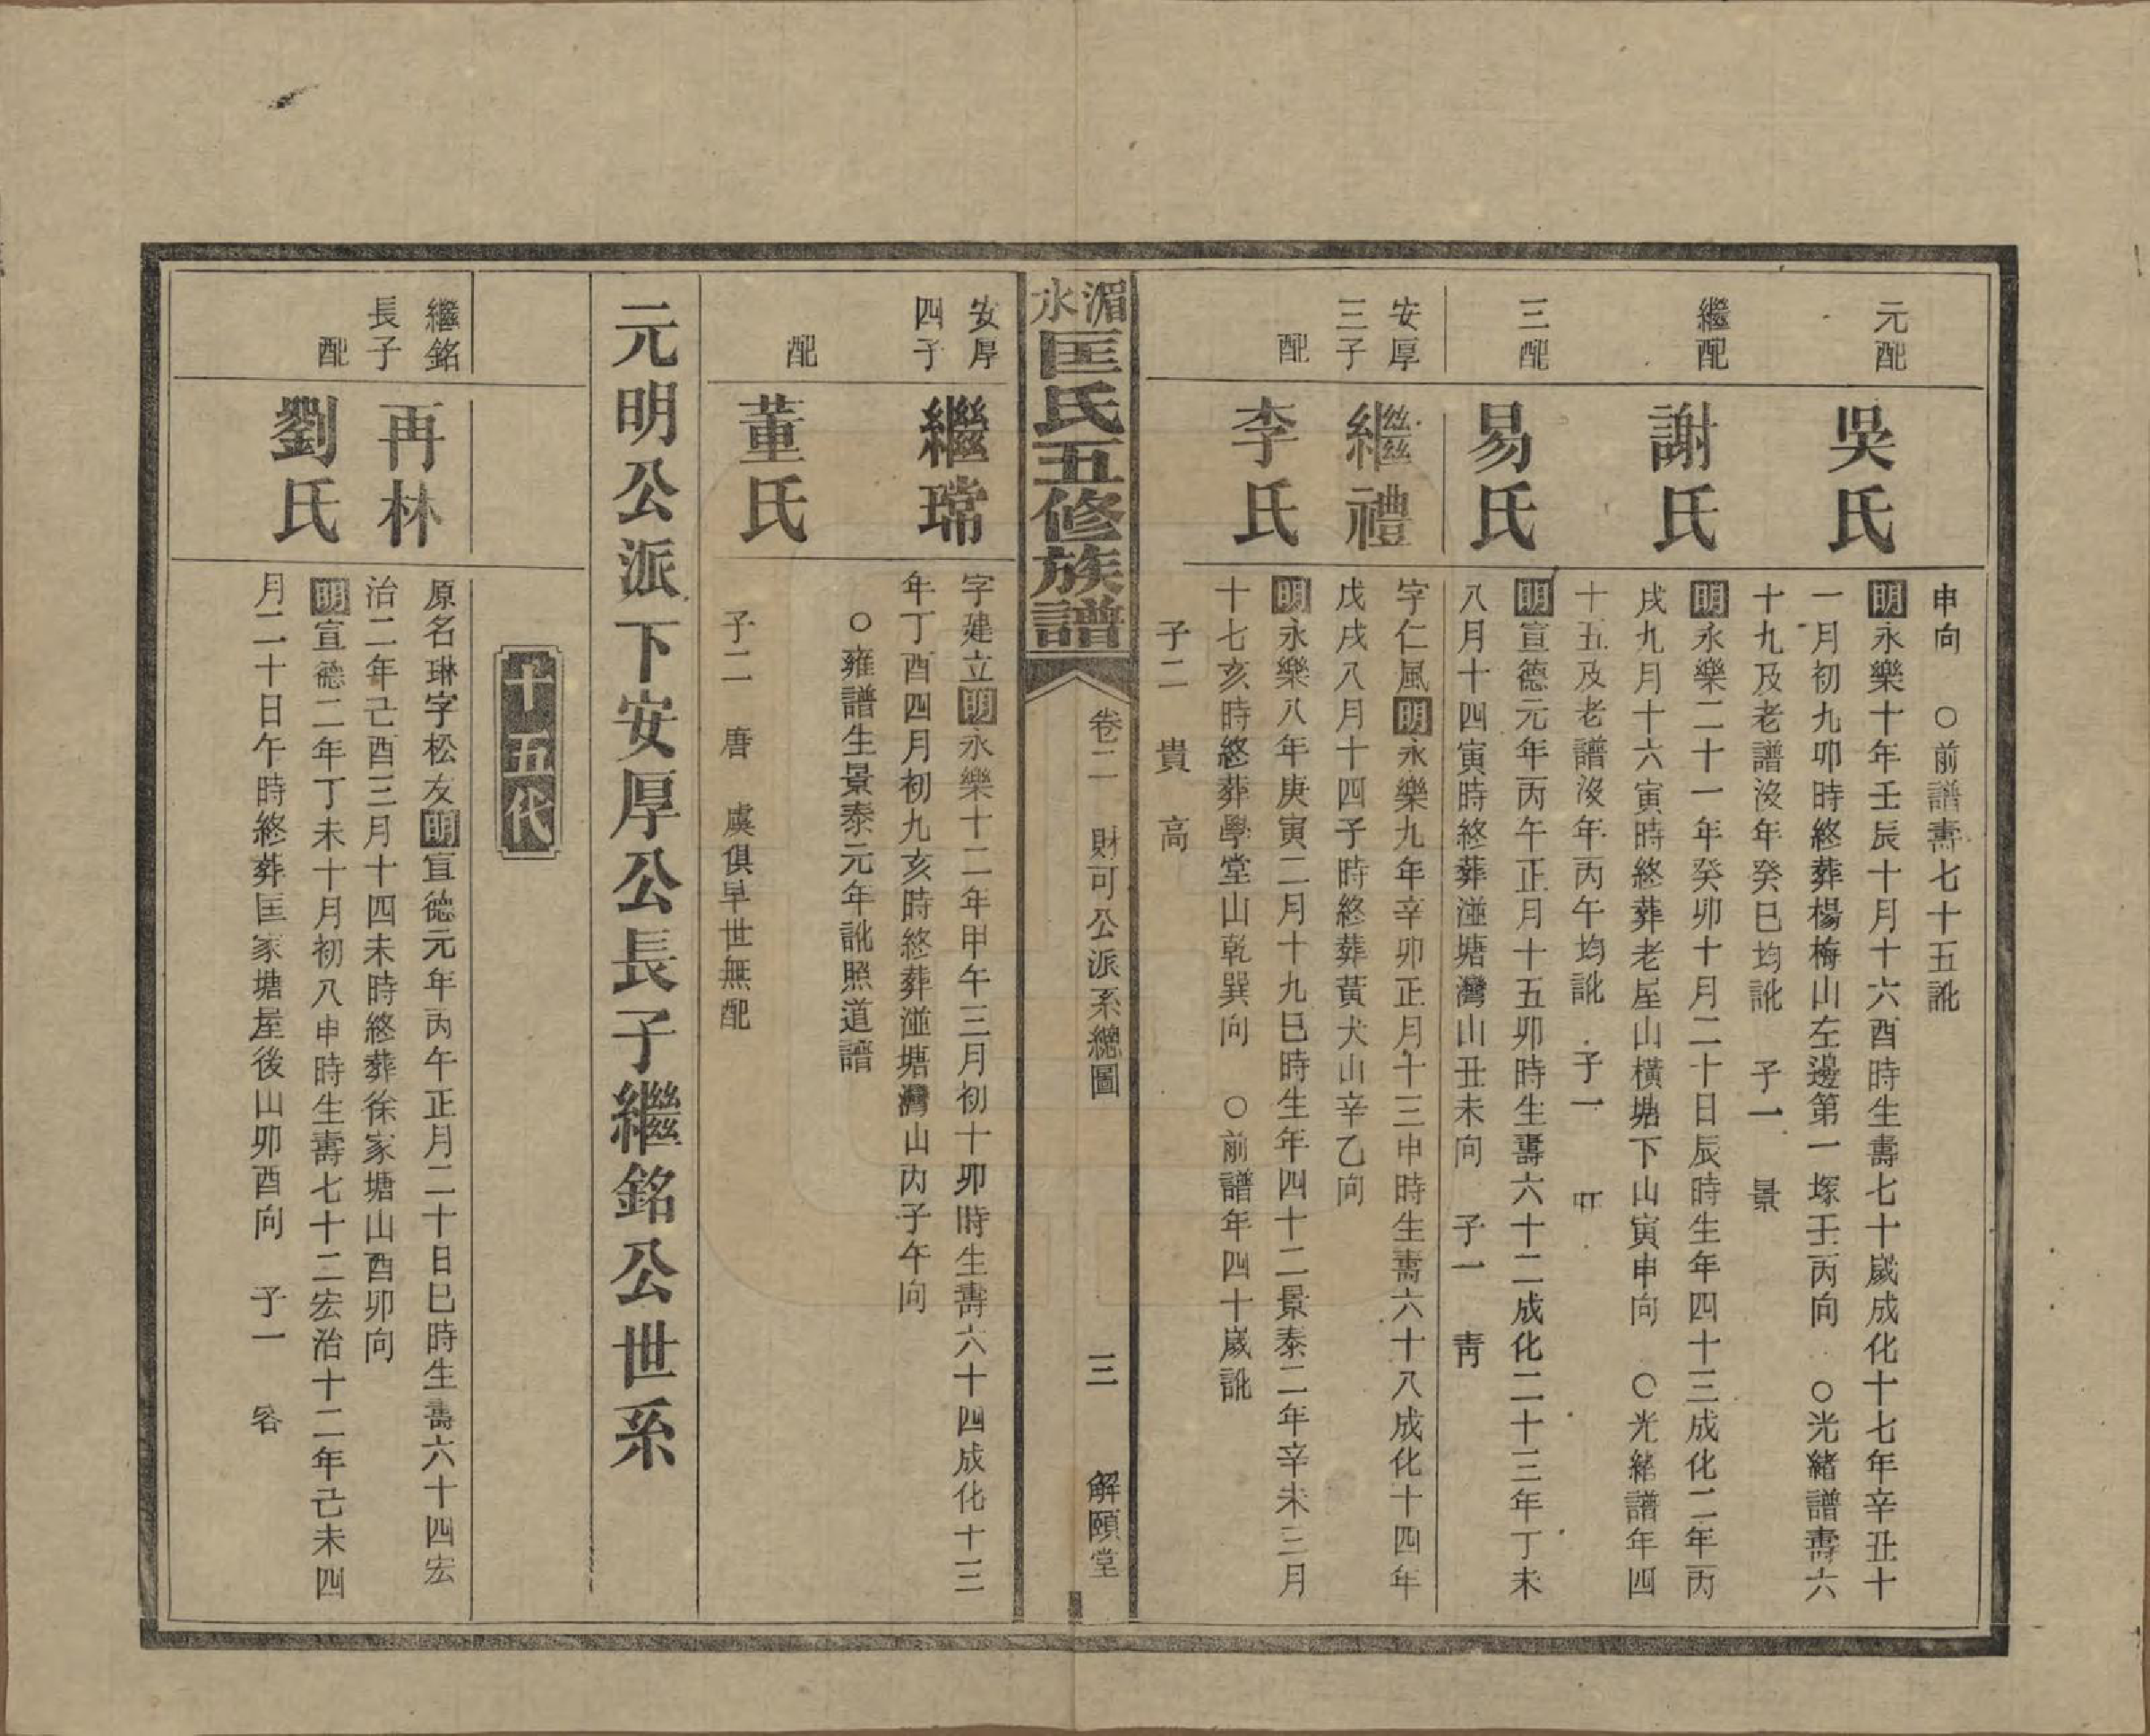 申向　○前譜壽七十五訛
元配
吳氏
明永樂十年壬辰十月十六酉時生壽七十歲成化十七年辛丑十
一月初九卯時終葬楊梅山左邊第一塚壬丙向　○光緒譜壽六
十九及老譜沒年癸巳均訛　子一　景
繼配
謝氏
明永樂二十一年癸卯十月二十日辰時生年四十三成化二年丙
戌九月十六寅時終葬老屋山橫塘下山寅申向　○光緒譜年四
十五及老譜沒年丙午均訛　子一
三配
易氏
明宣德元年丙午正月十五卯時生壽六十二成化二十三年丁未
八月十四寅時終葬湴塘灣山丑未向　子一　靑
安厚
三子
繼禮
字仁風明永樂九年辛卯正月十三申時生壽六十八成化十四年
戊戌八月十四子時終葬黃犬山辛乙向
配
李氏
明永樂八年庚寅二月十九巳時生年四十二景泰二年辛未三月
十七亥時終葬學堂山乾巽向　○前譜年四十歲訛
子二　貴　高
湄水匡氏五修族譜
卷二　財可公派系總圖
三
解頤堂
安厚
四子
繼瑺
字建立明永樂十二年甲午三月初十卯時生壽六十四成化十三
年丁酉四月初九亥時終葬湴塘灣山丙子午向
○雍譜生景泰元年訛照道譜
配
董氏
子二　唐　虞俱早世無配
元明公派下安厚公長子繼銘公世系
十五代
繼銘
長子
再林
原名琳字松友明宣德元年丙午正月二十日巳時生壽六十四宏
治二年己酉三月十四未時終葬徐家塘山酉卯向
配
劉氏
明宣德二年丁未十月初八申時生壽七十三宏治十二年己未四
月二十日午時終葬匡家塘屋後山卯酉向　子一　客